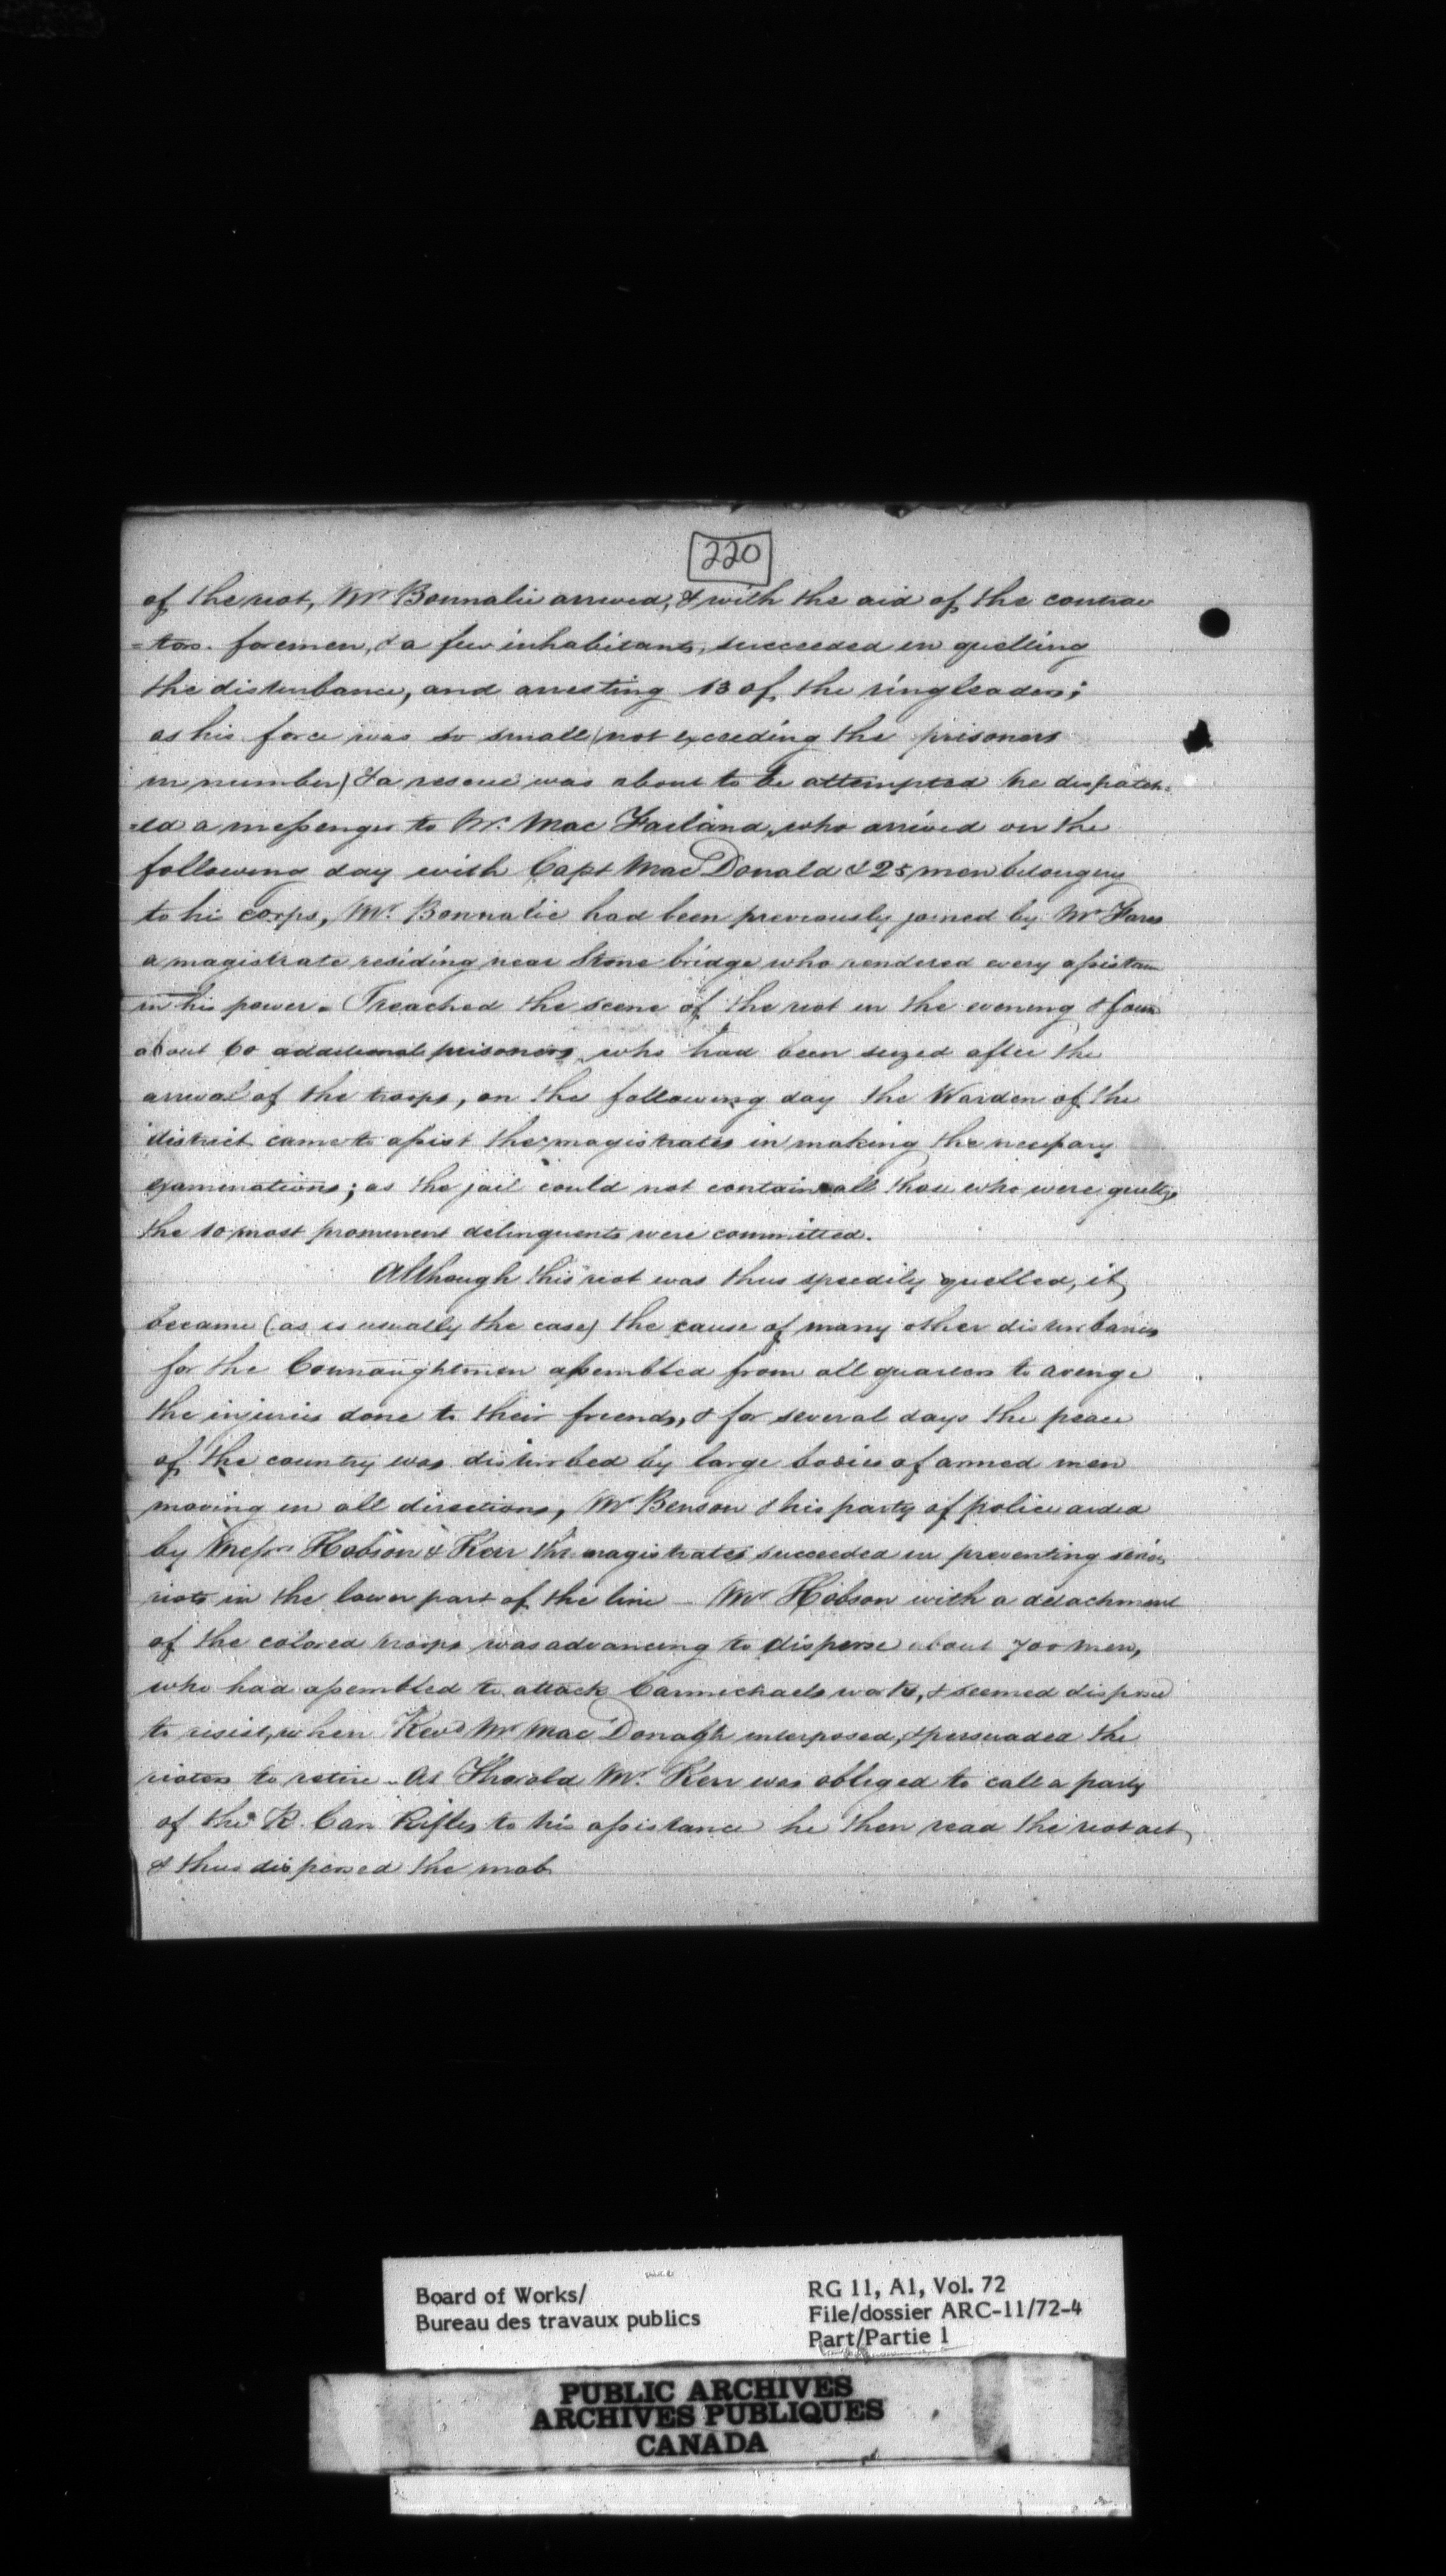 220
of the riot, Mr Bonnalie arrived, & with the aid of the contrac
=tors. foremen, & a few inhabitants, succeeded in quelling
the disturbance, and arresting 13 of the ringleaders;
as his force was so small (not exceeding the prisoners
in number) & a rescue was about to be attempted he dispatch=
=ed a messenger to Mr. Mac Farland, who arrived on the
following day with Capt Mac Donald & 25 men belonging
to his corps, Mr. Bonnalie had been previously joined by Mr Fares
a magistrate residing near Stone bridge who rendered every assistan
in his power. I reached the scene of the riot in the evening & foun
about 60 additional prisoners, who had been seized after the
arrival of the troops, on the following day the Warden of the
district came to assist the magistrates in making the necessary
examinations; as the jail could not contain all those who were guilty
the 10 most prominent delinquents were committed.
Although this riot was thus speedily quelled, it
became (as is usually the case) the cause of many other disturbances
for the Connaughtmen assembled from all quarters to avenge
the injuries done to their friends, & for several days the peace
of the country was disturbed by large bodies of armed men
moving in all directions, Mr Benson & his party of police aided
by Messrs Hobson & Kerr the magistrates succeeded in preventing serio
riots in the lower part of the line - Mr Hobson with a detachment
of the colored troops was advancing to disperse about 700 men,
who had assembled to attack Carmichaels works, & seemed disposed
to resist, when Revd Mr Mac Donagh interposed, & persuaded the
rioters to retire. At Thorold Mr. Kerr was obliged to call a party
of the R. Can Rifles to his assistance he then read the riot act,
& thus dispersed the mob
Board of Works/
Bureau des travaux publics
RG 11, A1, Vol. 72
File/dossier ARC-11/72-4
Part/Partie 1
PUBLIC ARCHIVES
ARCHIVES PUBLIQUES
CANADA